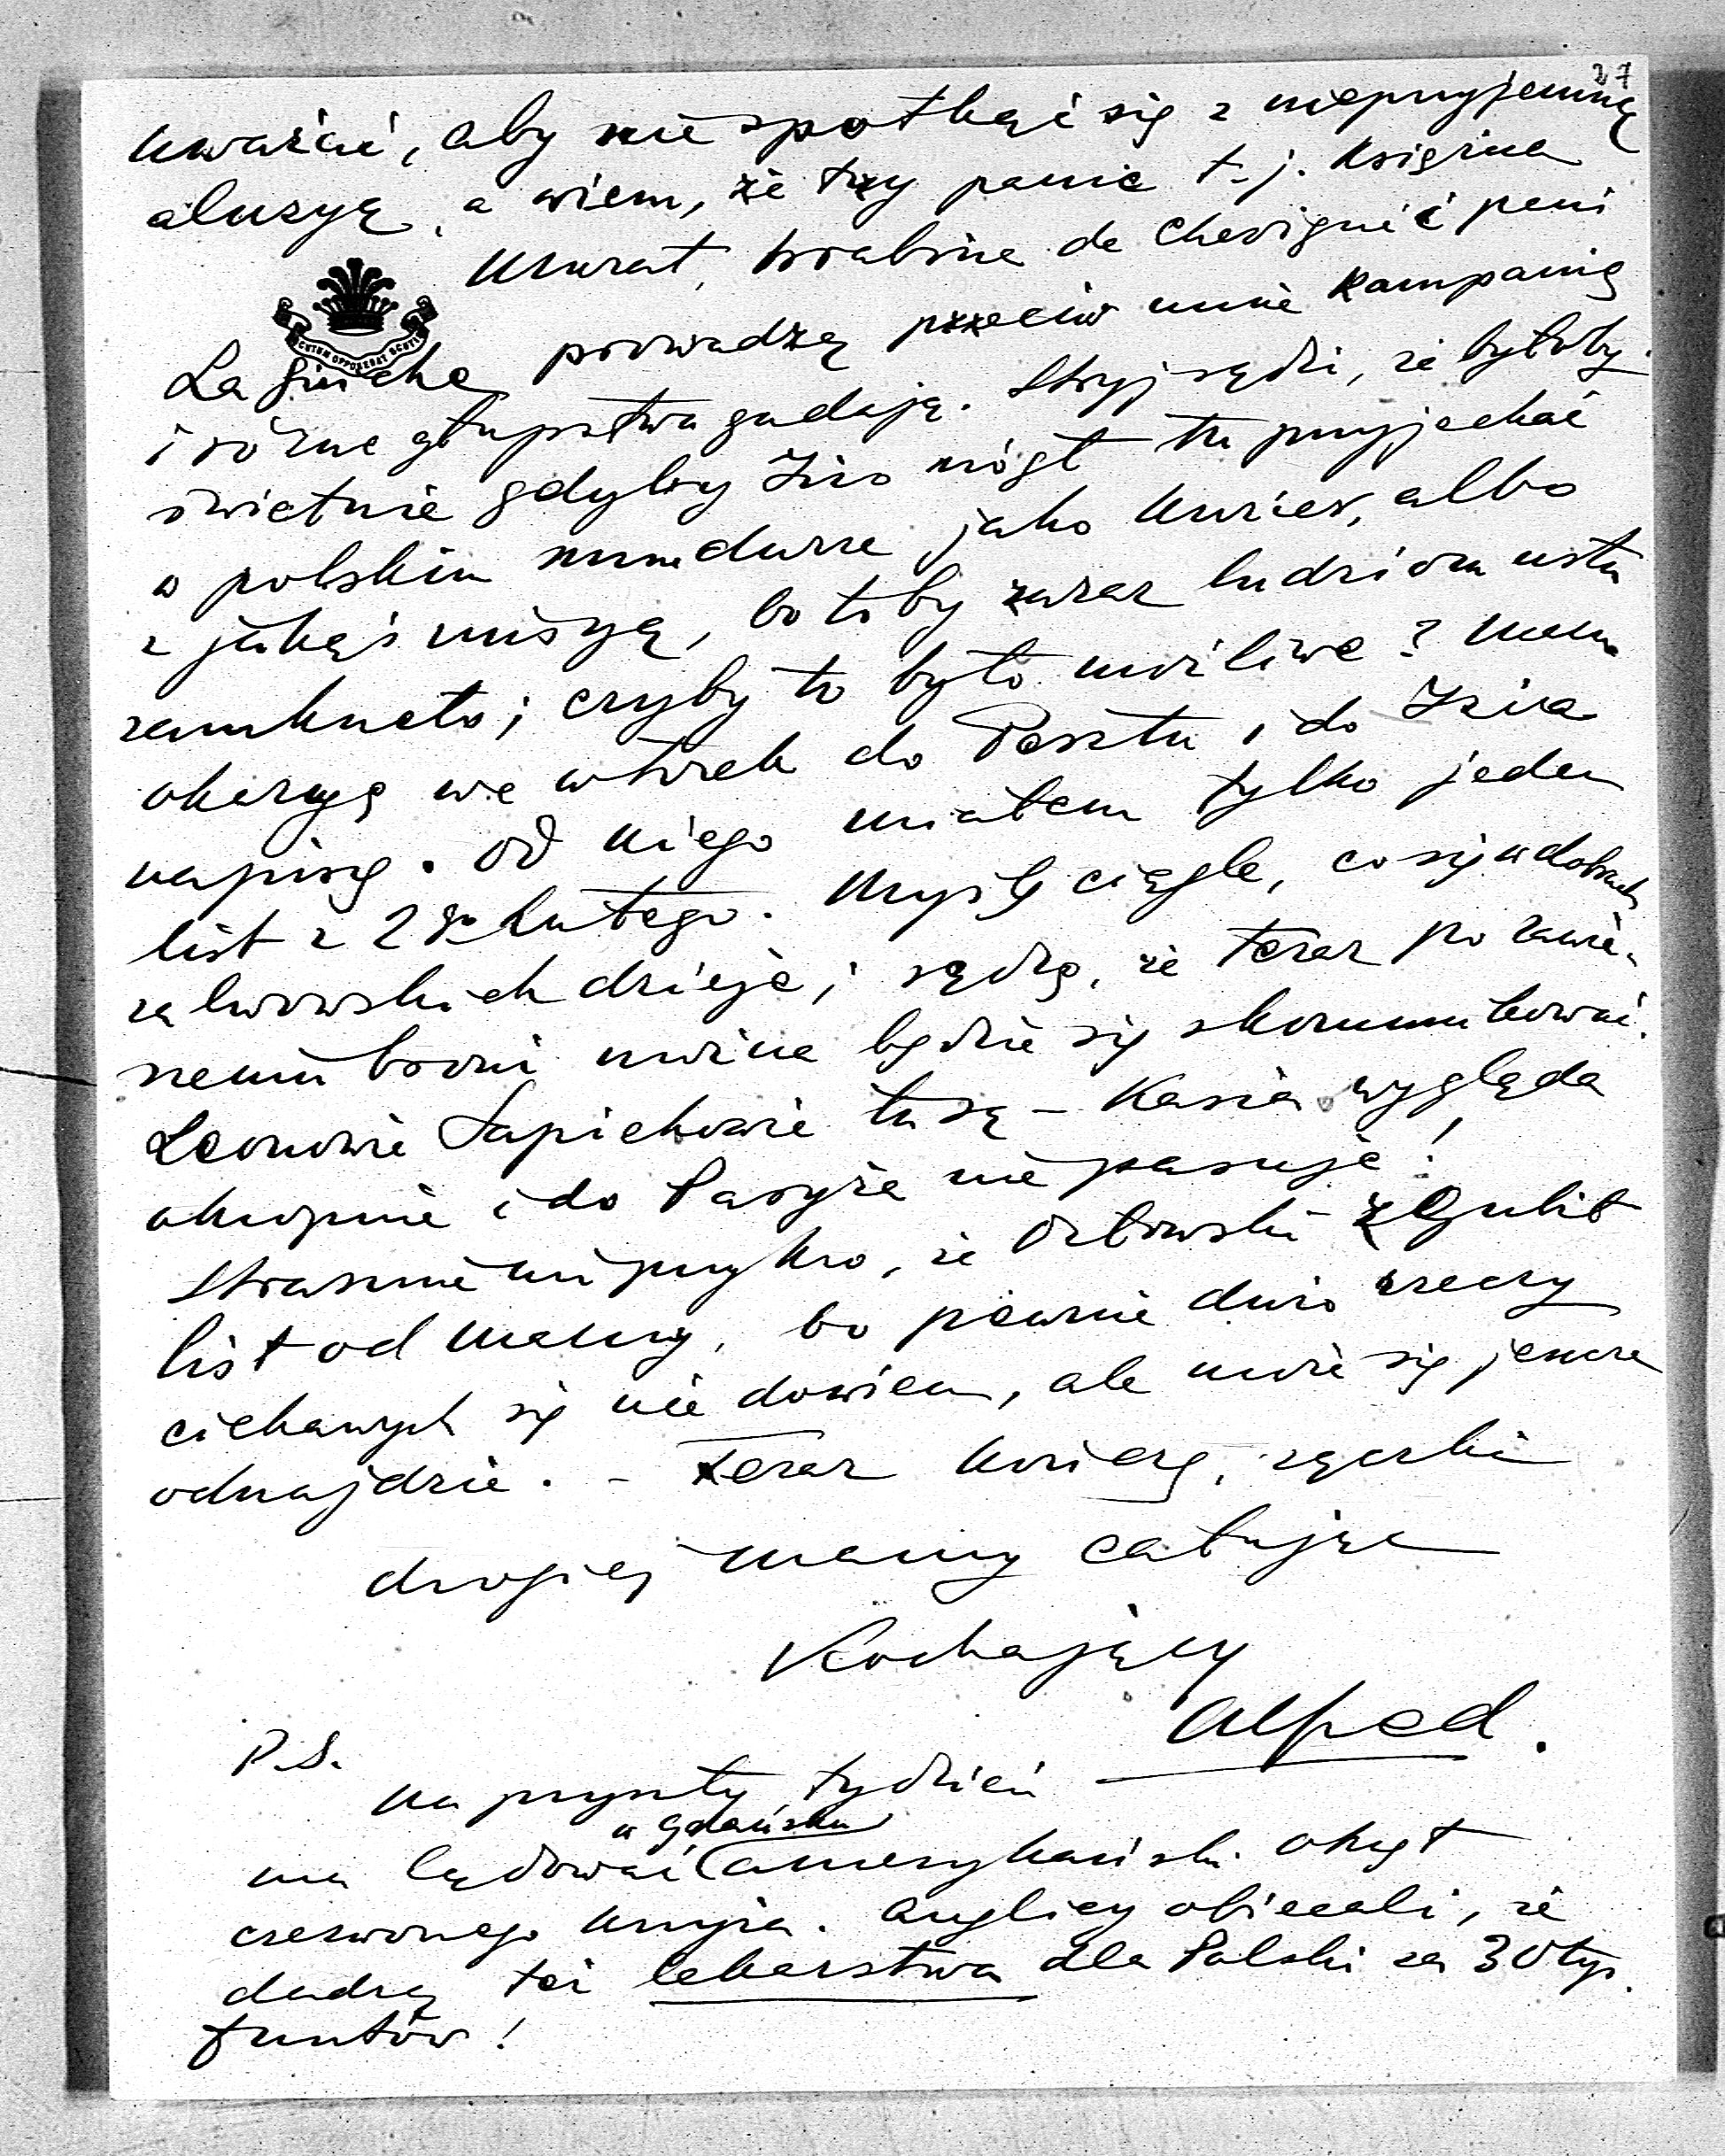 27
uważać, aby nie spotkać się z nieprzyjemną
aluzyą, a wiem, że trzy panie t.j. Księżna
Murat, hrabina de Chevignié i pani
La Guiche prowadzą przeciw mnie kampanię
i różne głupstwa gadają. Stryj sądzi, że byłoby
świetnie gdyby Izio mógł tu przyjechać
w polskim mundurze jako kurier, albo
z jakąś misyą, bo toby zaraz ludziom usta
zamknęło; czyby to było możliwe? Mam
okazyę we wtorek do Pesztu i do Izia
napiszę. Od niego miałem tylko jeden
list z 28 lutego. Myślę ciągle, co się w dobrach
za lwowskich dzieje; sądzę, że teraz po zawie-
szeniu broni można będzie się skomunikować.
Leonowie Sapiehowie tu są – Kasia wygląda
okropnie i do Paryża nie pasuje!
Strasznie mi przykro, że Orłowski zgubił
list od Mamy, bo pewnie dużo rzeczy
ciekawych się nie dowiem, ale może się jeszcze
odnajdzie. – Teraz kończę, rączki
drogiej Mamy całując
Kochający
Alfred.
P.S.
Na przyszły tydzień
w Gdańsku
ma lądować amerykański okręt
czerwonego krzyża. Anglicy obiecali, że
dadzą też lekarstwa dla Polski za 30 tys.
funtów!